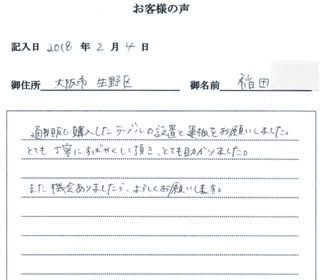 お客様の声
記入日 2018 年 2 月 4 日
御住所 大阪市 生野区 御名前 稲田
通販で購入したテーブルの設置と運搬をお願いしました。
とても丁寧にすばやくしい頂き、とても助かりました。
また機会ありましたら、よろしくお願いします。